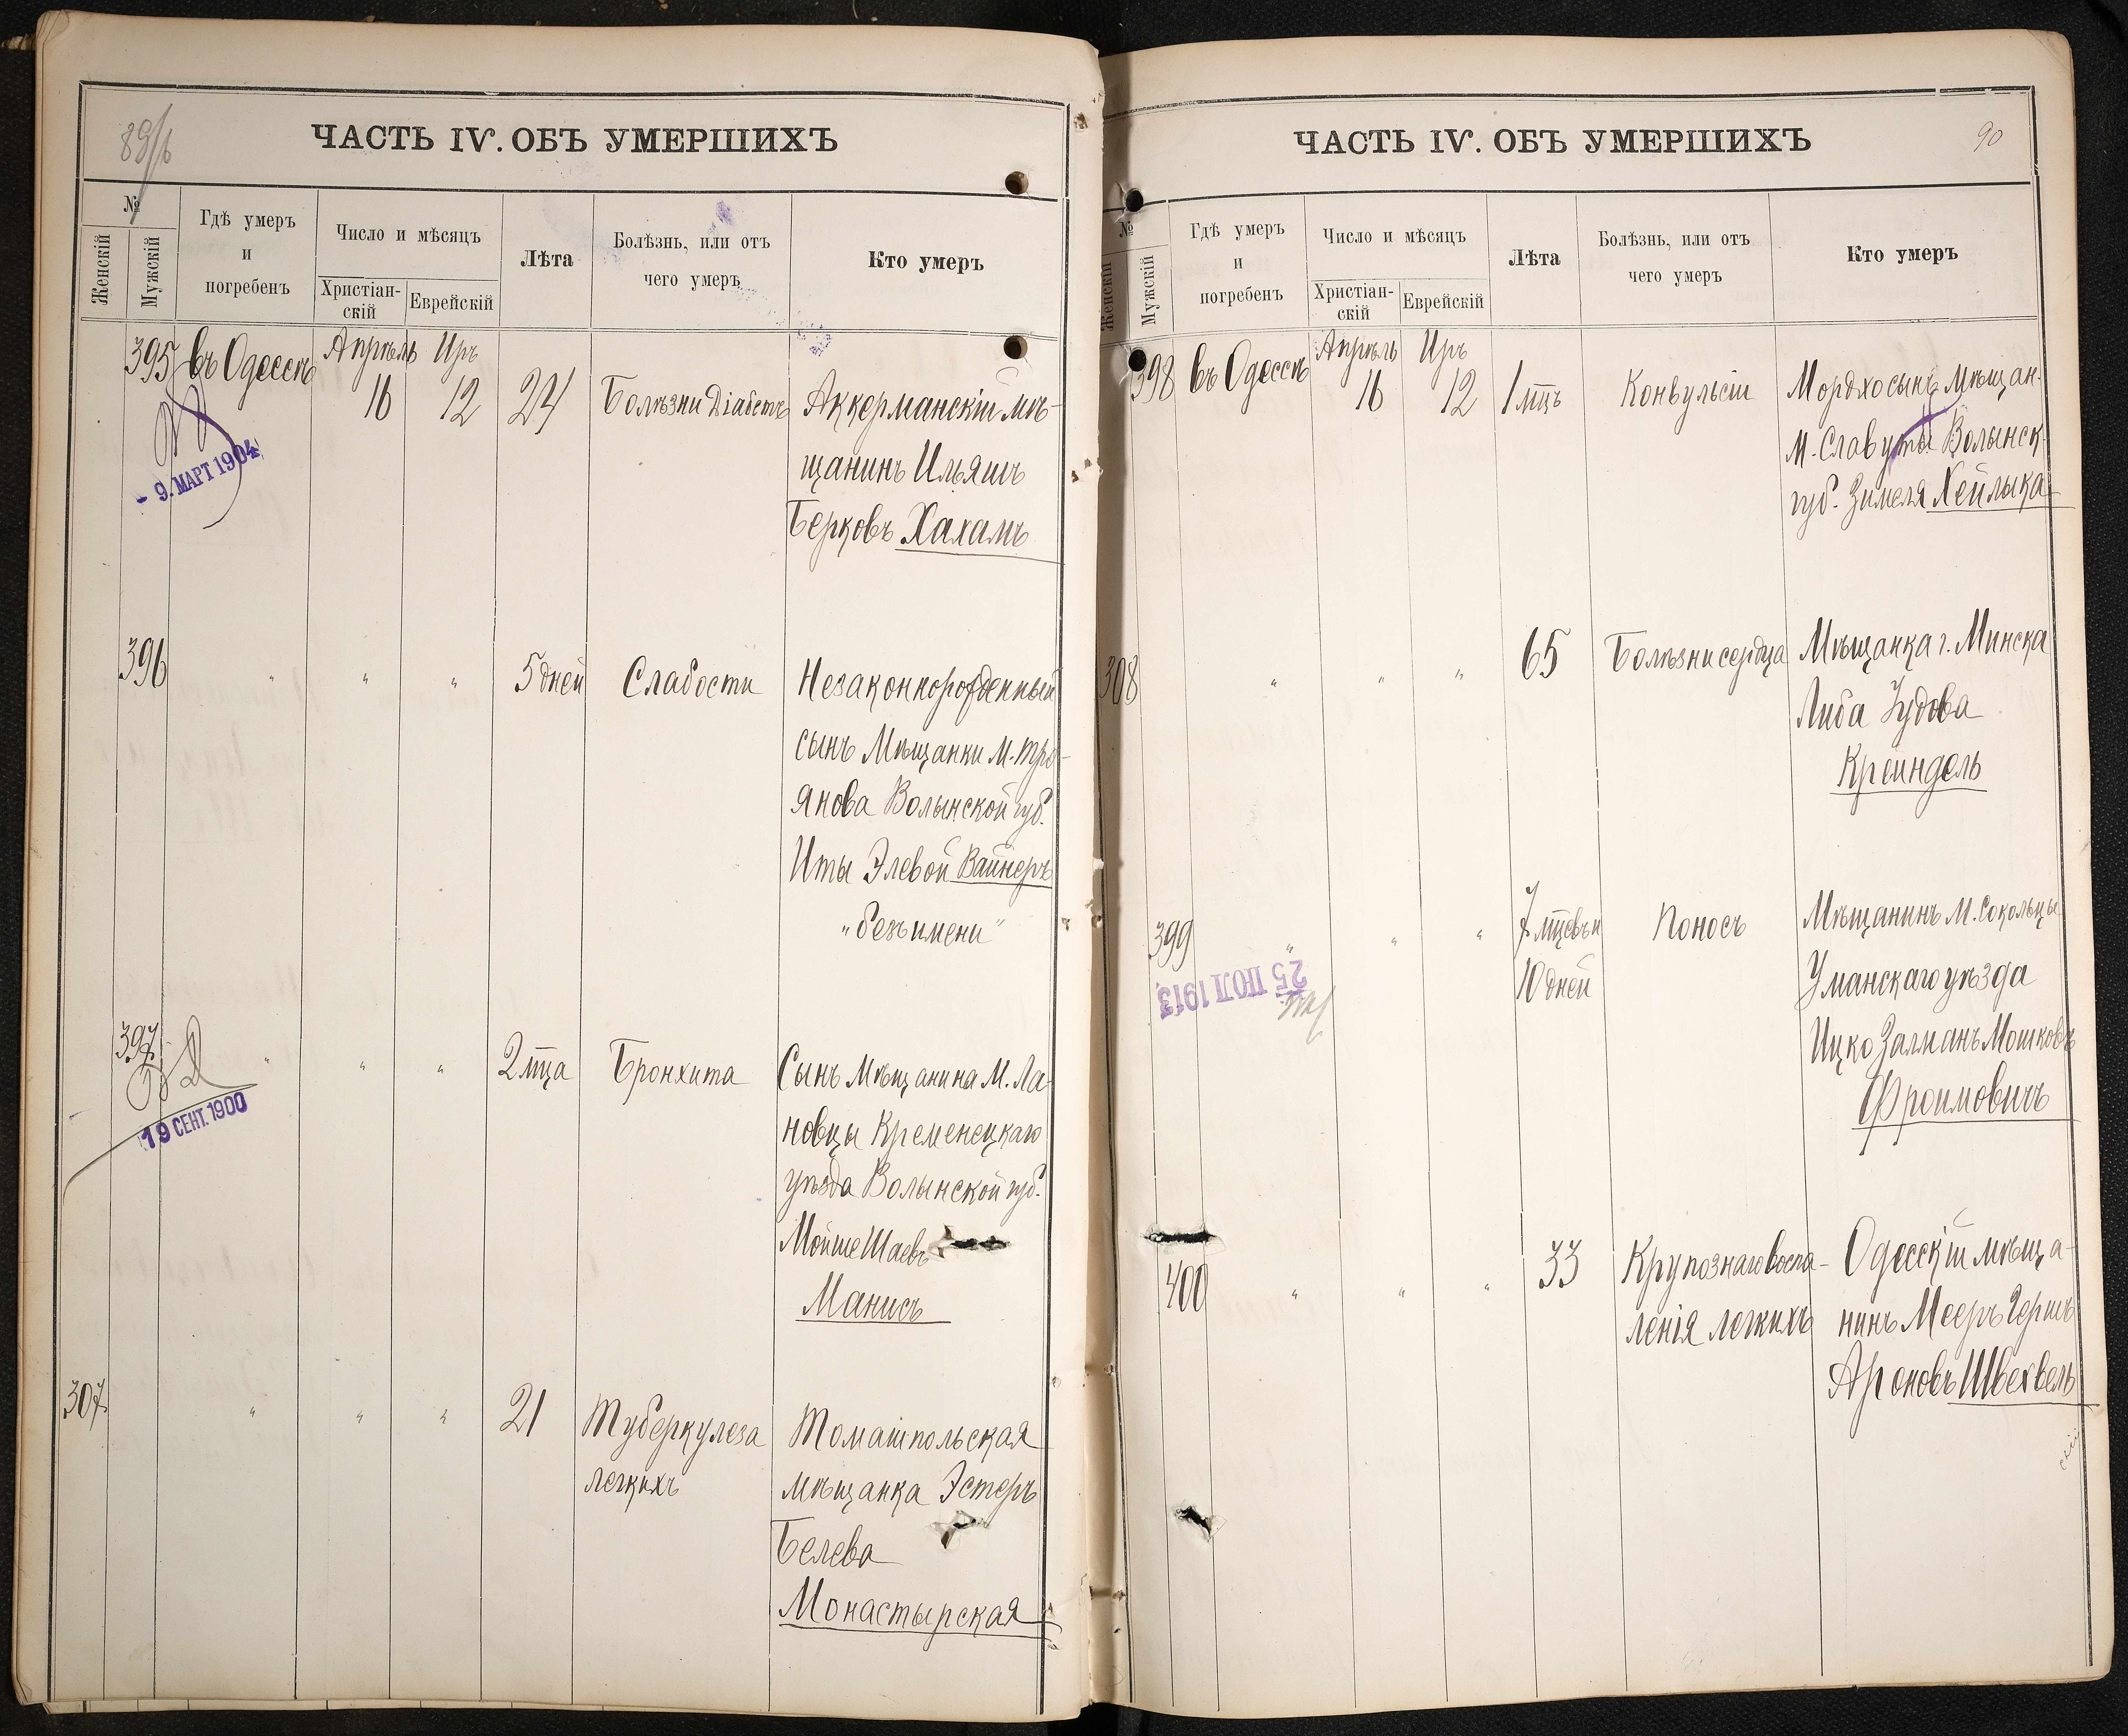 89/б
ЧАСТЬ IV. ОБЪ УМЕРШИХЪ
№
Женскій
Мужскій
Гдѣ умеръ
и
погребенъ
Число и мѣсяцъ
Христіан-
скій
Еврейскій
Лѣта
Болѣзнь, или отъ
чего умеръ
Кто умеръ
395 въ Одессѣ Апрѣль Иръ
16 12 24 Болѣзни Діабетъ Аккерманскій мѣ-
щанинъ Ильяшъ
Берковъ Хахамъ
- 9. МАРТ 1904
396 " " " 5 дней Слабости Незаконнорожденный
сынъ Мѣщанки М. Тро-
янова Волынской губ.
Иты Элевой Вайнеръ
"безъ имени"
397 " " " 2 мца Бронхита Сынъ Мѣщанина М. Ла-
новцы Кременецкаго
уѣзда Волынской губ.
Мойше Шаевъ
Манисъ
19 СЕНТ. 1900
307 " " " 21 Туберкулеза Томашпольская
легкихъ мѣщанка Эстеръ
Белева
Монастырская
90
ЧАСТЬ IV. ОБЪ УМЕРШИХЪ
№
Женскій
Мужскій
Гдѣ умеръ
и
погребенъ
Число и мѣсяцъ
Христіан-
скій
Еврейскій
Лѣта
Болѣзнь, или отъ
чего умеръ
Кто умеръ
398 въ Одессѣ Апрѣль Иръ
16 12 1 мцъ Конвульсіи Мордхо сынъ Мѣщан.
М. Славуты Волынск.
губ. Зимеля Хейлыка
308 " " " 65 Болѣзни сердца Мѣщанка г. Минска
Либа Іудова
Крейндель
399 " " " 7 мцевъ и Поносъ Мѣщанинъ М. Сокольцы
10 дней Уманскаго уѣзда
Ицко Залманъ Мошковъ
Фроимовичъ
25 ІЮЛ 1913
400 " " " 33 Крупознаго воспа- Одесскій мѣща-
ленія легкихъ нинъ Мееръ Гершъ
Ароновъ Швехвель